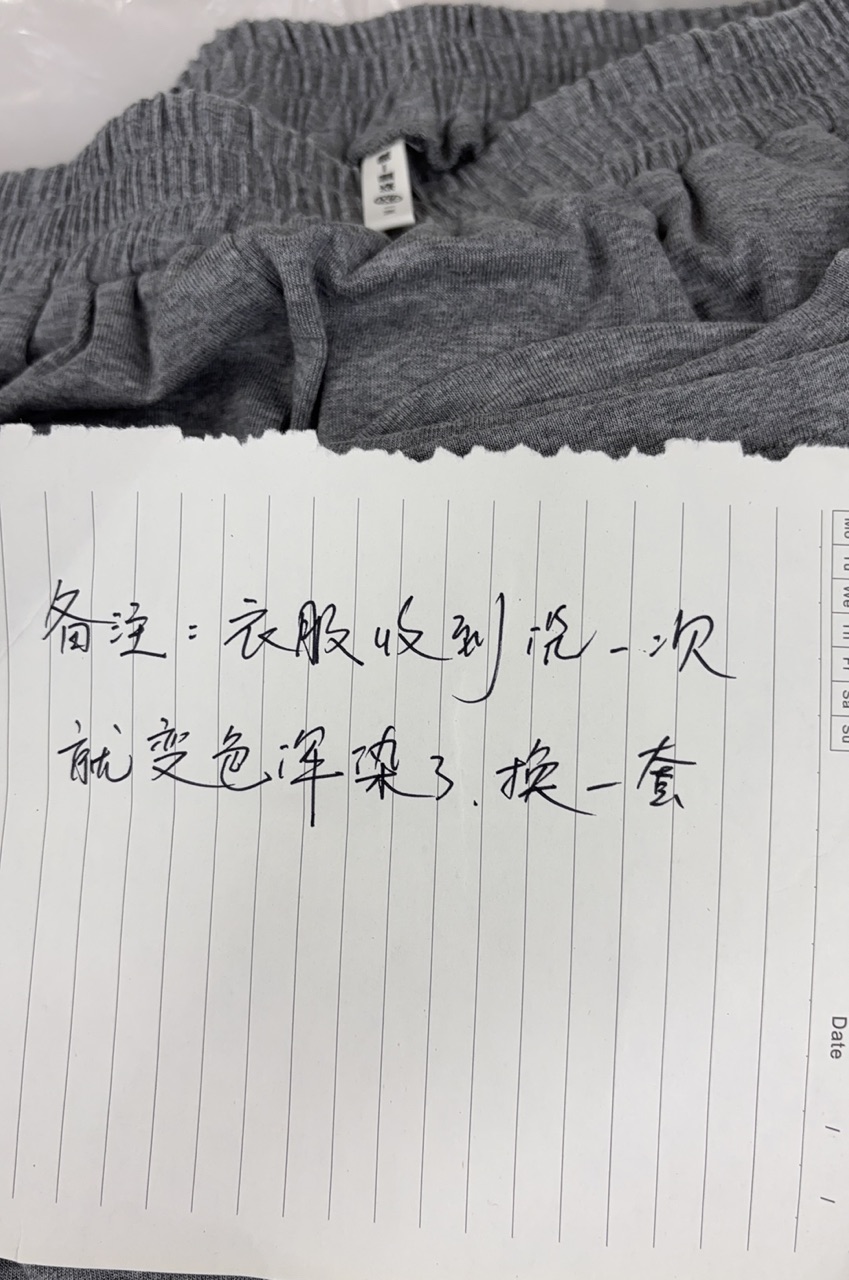 备注：衣服收到洗一次
就变色浑染了.换一套
Mo
Tu
We
Th
Fr
Sa
Su
Date / /